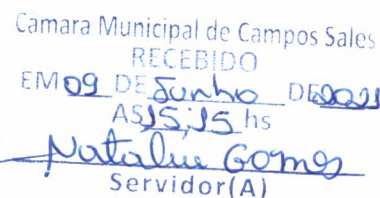 Câmara Municipal de Campos Sales
RECEBIDO
EM 09 DE Junho DE 2021
AS 15:15 hs
Natalue Gomes
Servidor(A)